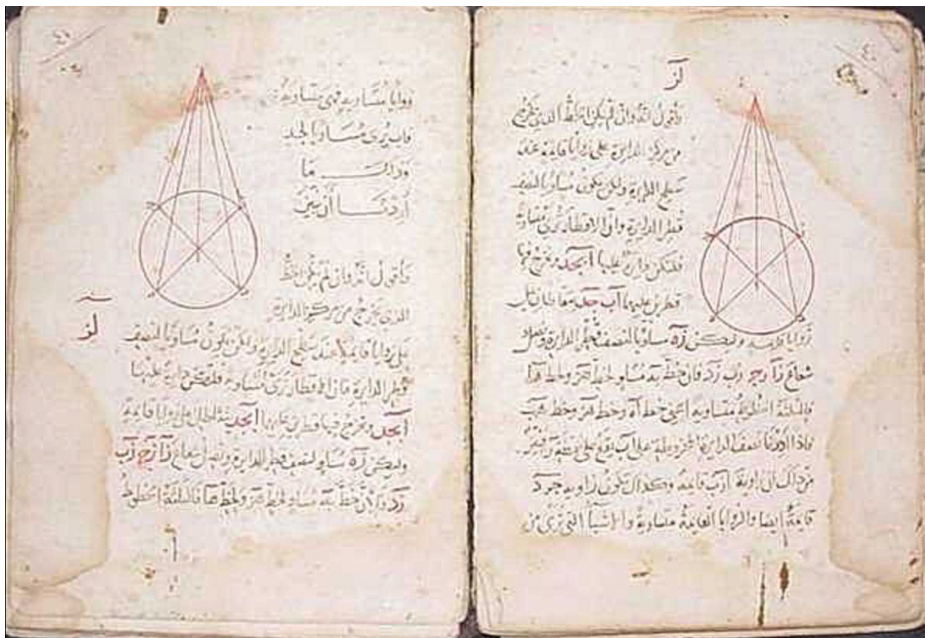 لز
وأقول انه وان لم يكن الخط الذي يخرج
من مركز الدايرة على زوايا قايمة عند
سطح الدايرة ولكن يكون مساويا لنصف
قطر الدايرة فان الاقطار ترى متساوية
فلتكن دايرة عليها ابجد ونخرج فيها
قطرين عليهما اب جد يتقاطعان على
زوايا قايمة وليكن زه مساويا لنصف قطر الدايرة ونصل
شعاع زا زج زب زد فان خط به مساو لخط هز وخط ها
فالثلثة الخطوط متساوية اعني خط اه وخط هز وخط هب
فاذا ادرنا نصف الدايرة على اب يقع على نقطة ز فتبين
من ذلك ان زاوية ازب قايمة وكذلك تكون زاوية جزد
قايمة ايضا والزوايا القايمة متساوية والاشيا التي ترى من
زوايا متساوية فهي متساوية
فاب يرى مساويا لجد
وذلك ما
اردنا ان نبين
واقول انه وان لم يكن الخط
الذي يخرج من مركز الدايرة
لز
على زوايا قايمة عند سطح الدايرة ولكن يكون مساويا لنصف
قطر الدايرة فان الاقطار ترى متساوية فلتكن دايرة عليها
ابجد ونخرج فيها قطرين عليهما ابجد يتقاطعان على زوايا قايمة
وليكن زه مساو لنصف قطر الدايرة ونصل شعاع زا زج زب
زد فان خط به مساو لخط هز ولخط ها فالثلثة الخطوط